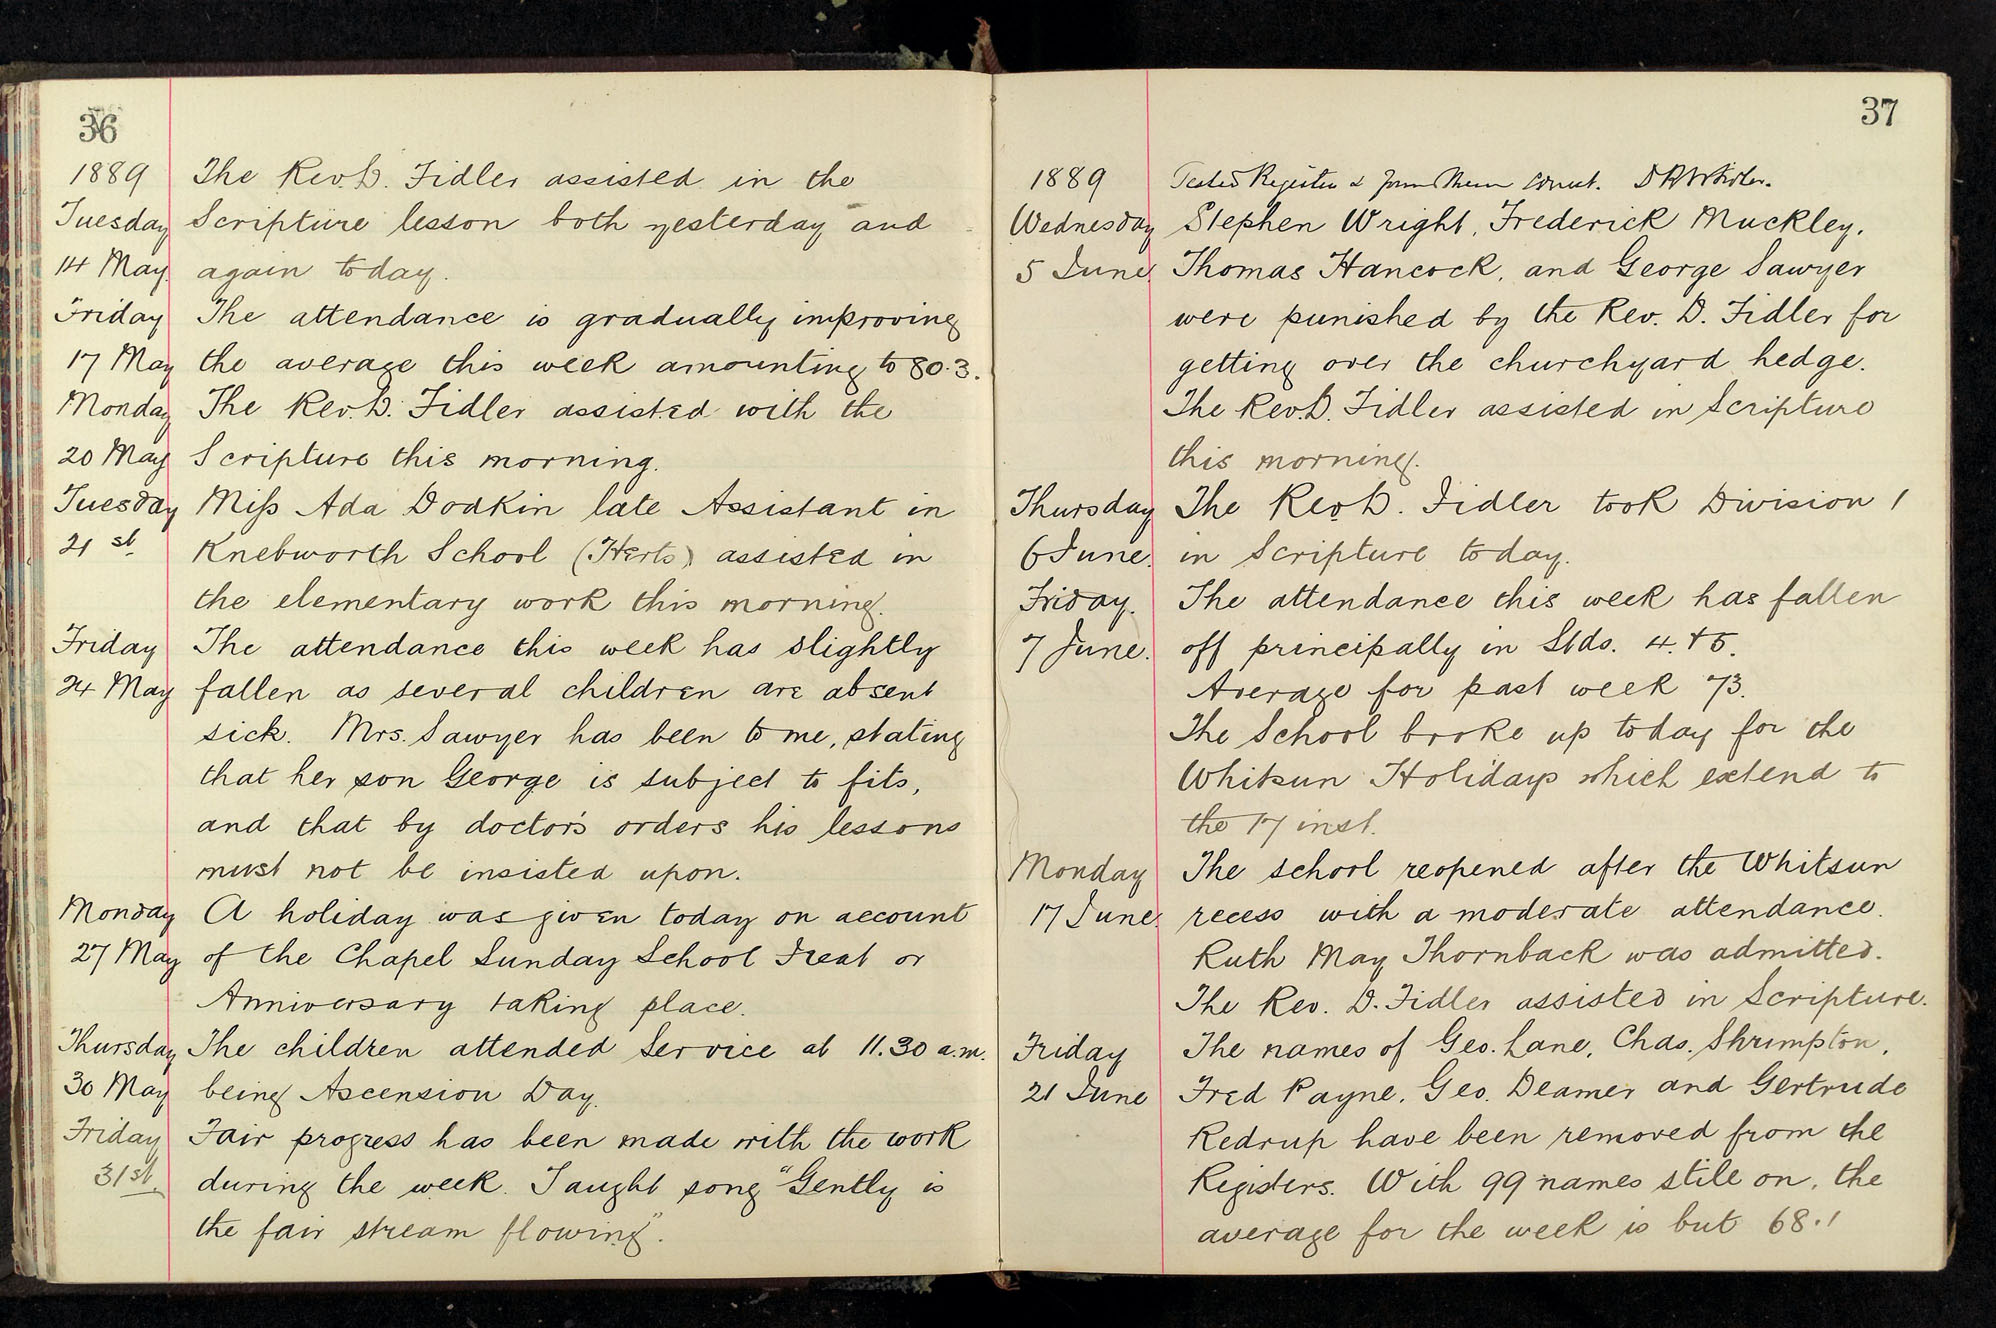 36
1889 The Rev. D. Fidler assisted in the
Tuesday Scripture lesson both yesterday and
14 May. again today.
Friday The attendance is gradually improving
17 May the average this week amounting to 80.3.
Monday The Rev. D. Fidler assisted with the
20 May Scripture this morning.
Tuesday Miss Ada Dodkin late Assistant in
21st Knebworth School (Herts) assisted in
the elementary work this morning.
Friday The attendance this week has slightly
24 May fallen as several children are absent
sick. Mrs. Sawyer has been to me, stating
that her son George is subject to fits,
and that by doctor's orders his lessons
must not be insisted upon.
Monday A holiday was given today on account
27 May of the Chapel Sunday School Treat or
Anniversary taking place.
Thursday The children attended Service at 11.30 a.m.
30 May being Ascension Day.
Friday Fair progress has been made with the work
31st. during the week. Taught song "Gently is
the fair stream flowing".
37
1889 Tested Registers &
Wednesday Stephen Wright, Frederick Muckley.
5 June. Thomas Hancock, and George Sawyer
were punished by the Rev. D. Fidler for
getting over the churchyard hedge.
The Rev. D. Fidler assisted in Scripture
this morning.
Thursday The Rev. D. Fidler took Division 1
6 June. in Scripture today.
Friday. The attendance this week has fallen
7 June. off principally in Stds. 4. + 5.
Average for past week 73.
The School broke up today for the
Whitsun Holidays which extend to
the 17 inst.
Monday The school reopened after the Whitsun
17 June. recess with a moderate attendance.
Ruth May Thornback was admitted.
The Rev. D. Fidler assisted in Scripture.
Friday The names of Geo. Lane, Chas. Shrimpton,
21 June Fred Payne, Geo. Deamer and Gertrude
Redrup have been removed from the
Registers. With 99 names still on, the
average for the week is but 68.1